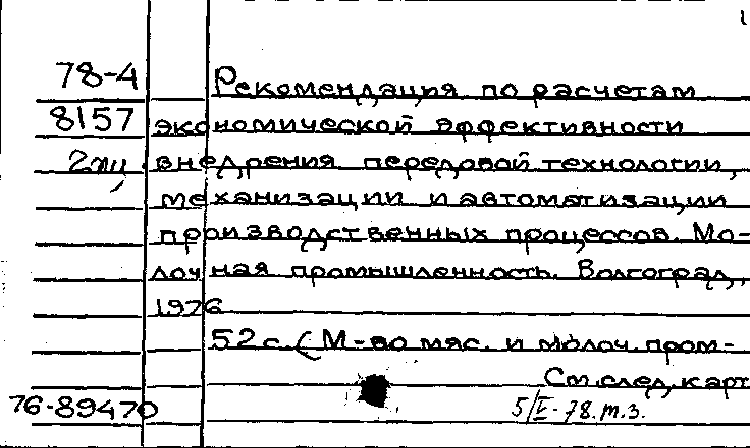 1
78-4 Рекомендация по расчетам
8157 экономической эффективности
2 внедрения передовой технологии,
механизации и автоматизации
производственных процессов. Мо-
лочная промышленность. Волгоград,
1976
52 с. (М-во мяс. и молоч. пром-
См. след. карт
76-89470 5/I-78. т.з.